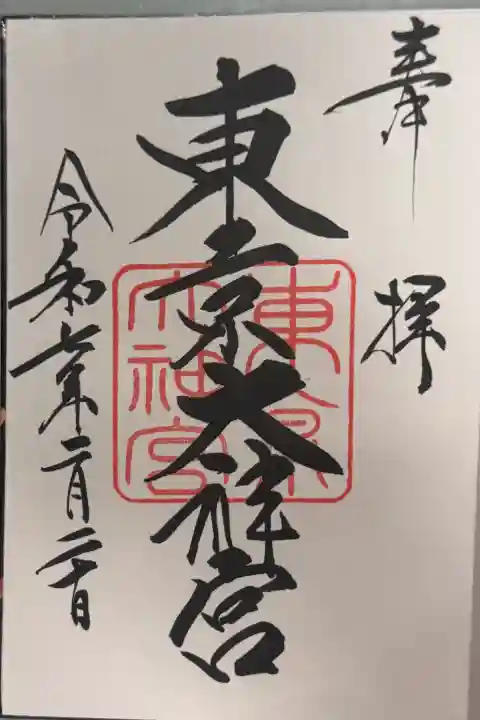 奉拝
東京大神宮
東京大神宮
令和七年二月二十日